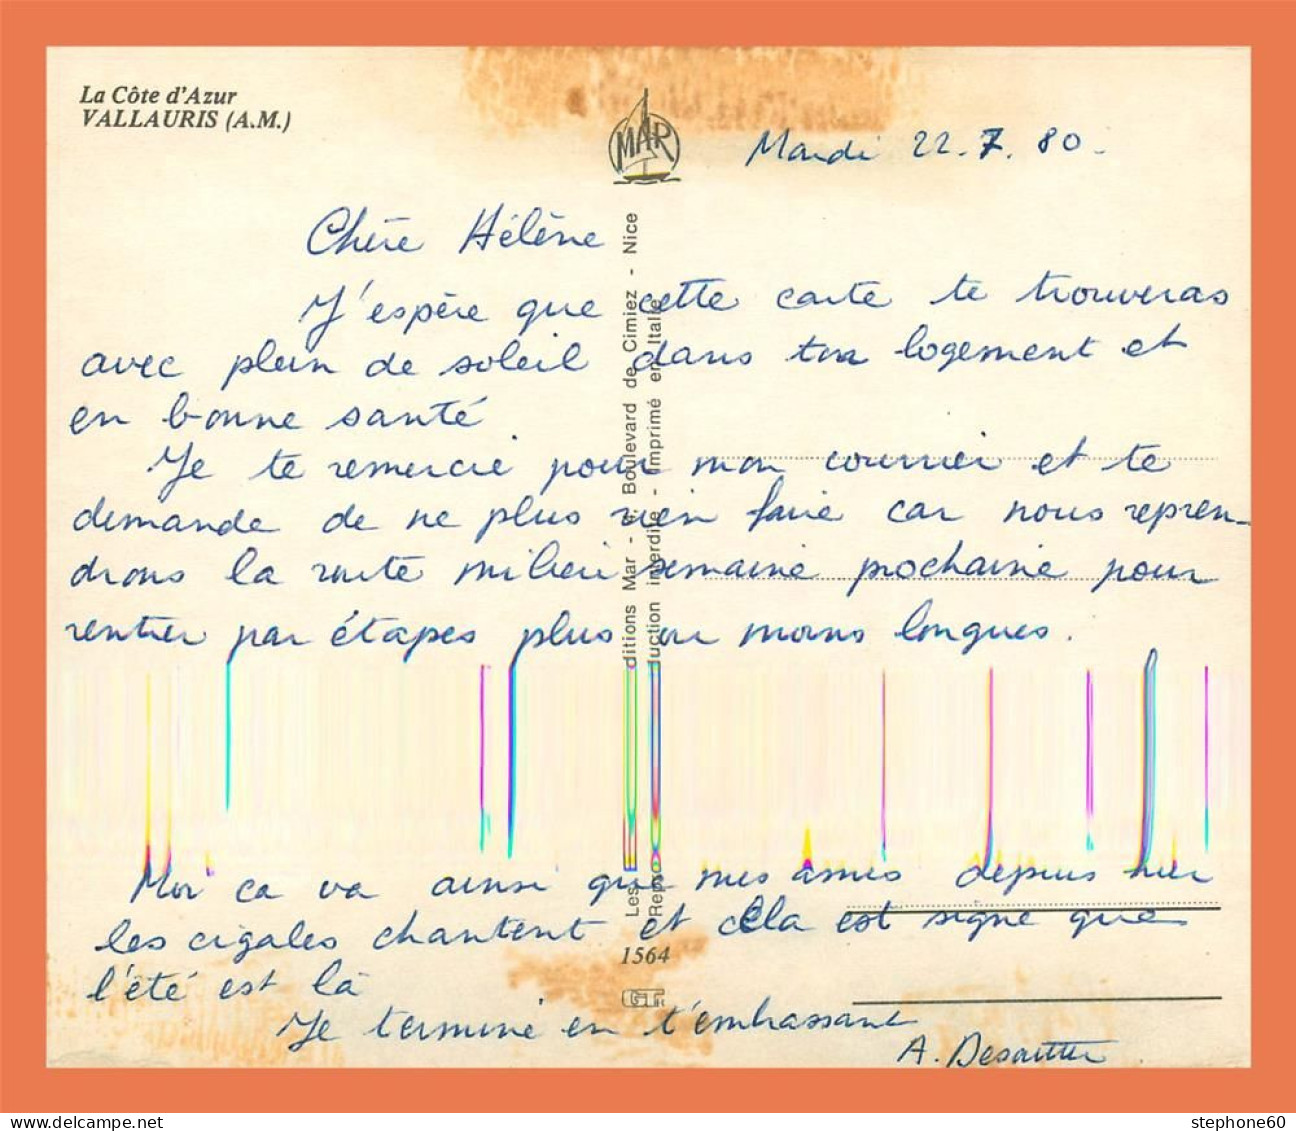 La Côte d'Azur
VALLAURIS (A.M.)
MAR
Mardi 22.7.80.
Chère Hélène
J'espère que cette carte te trouveras
avec plein de soleil dans ton logement et
en bonne santé
Je te remercie pour mon courrier et te
demande de ne plus rien faire car nous repren-
drons la route milieu semaine prochaine pour
rentrer par étapes plus ou moins longues.
Moi ca va ainsi que mes amis depuis hier
les cigales chantent et cela est signe que
l'été est là
Je termine en t'embrassant
A.
Les ditions Mar - Boulevard de Cimiez - Nice
Repro uction interdite - Imprimé en Italie
1564
stephone60